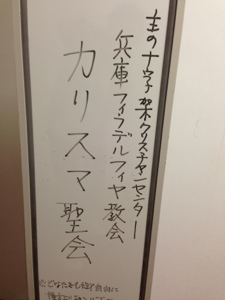 主の十字架クリスチャンセンター
兵庫フィラデルフィヤ教会
カリスマ聖会
◎どなたでも自由に